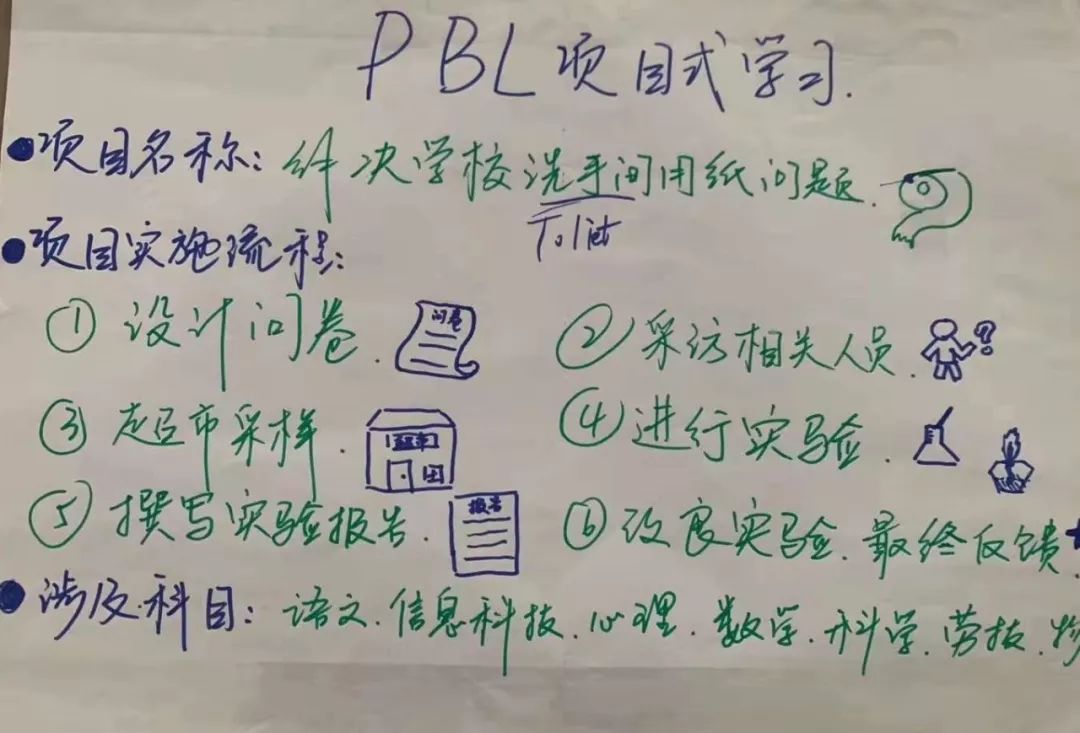 PBL 项目式学习.
●项目名称: 解决学校洗手间用纸问题.
Toliet
●项目实施流程:
① 设计问卷. 问卷
② 采访相关人员. ?
③ 超市采样. 超市
④ 进行实验.
⑤ 撰写实验报告. 报告
⑥ 改良实验. 最终反馈
●涉及科目: 语文. 信息科技. 心理. 数学. 科学. 劳技.